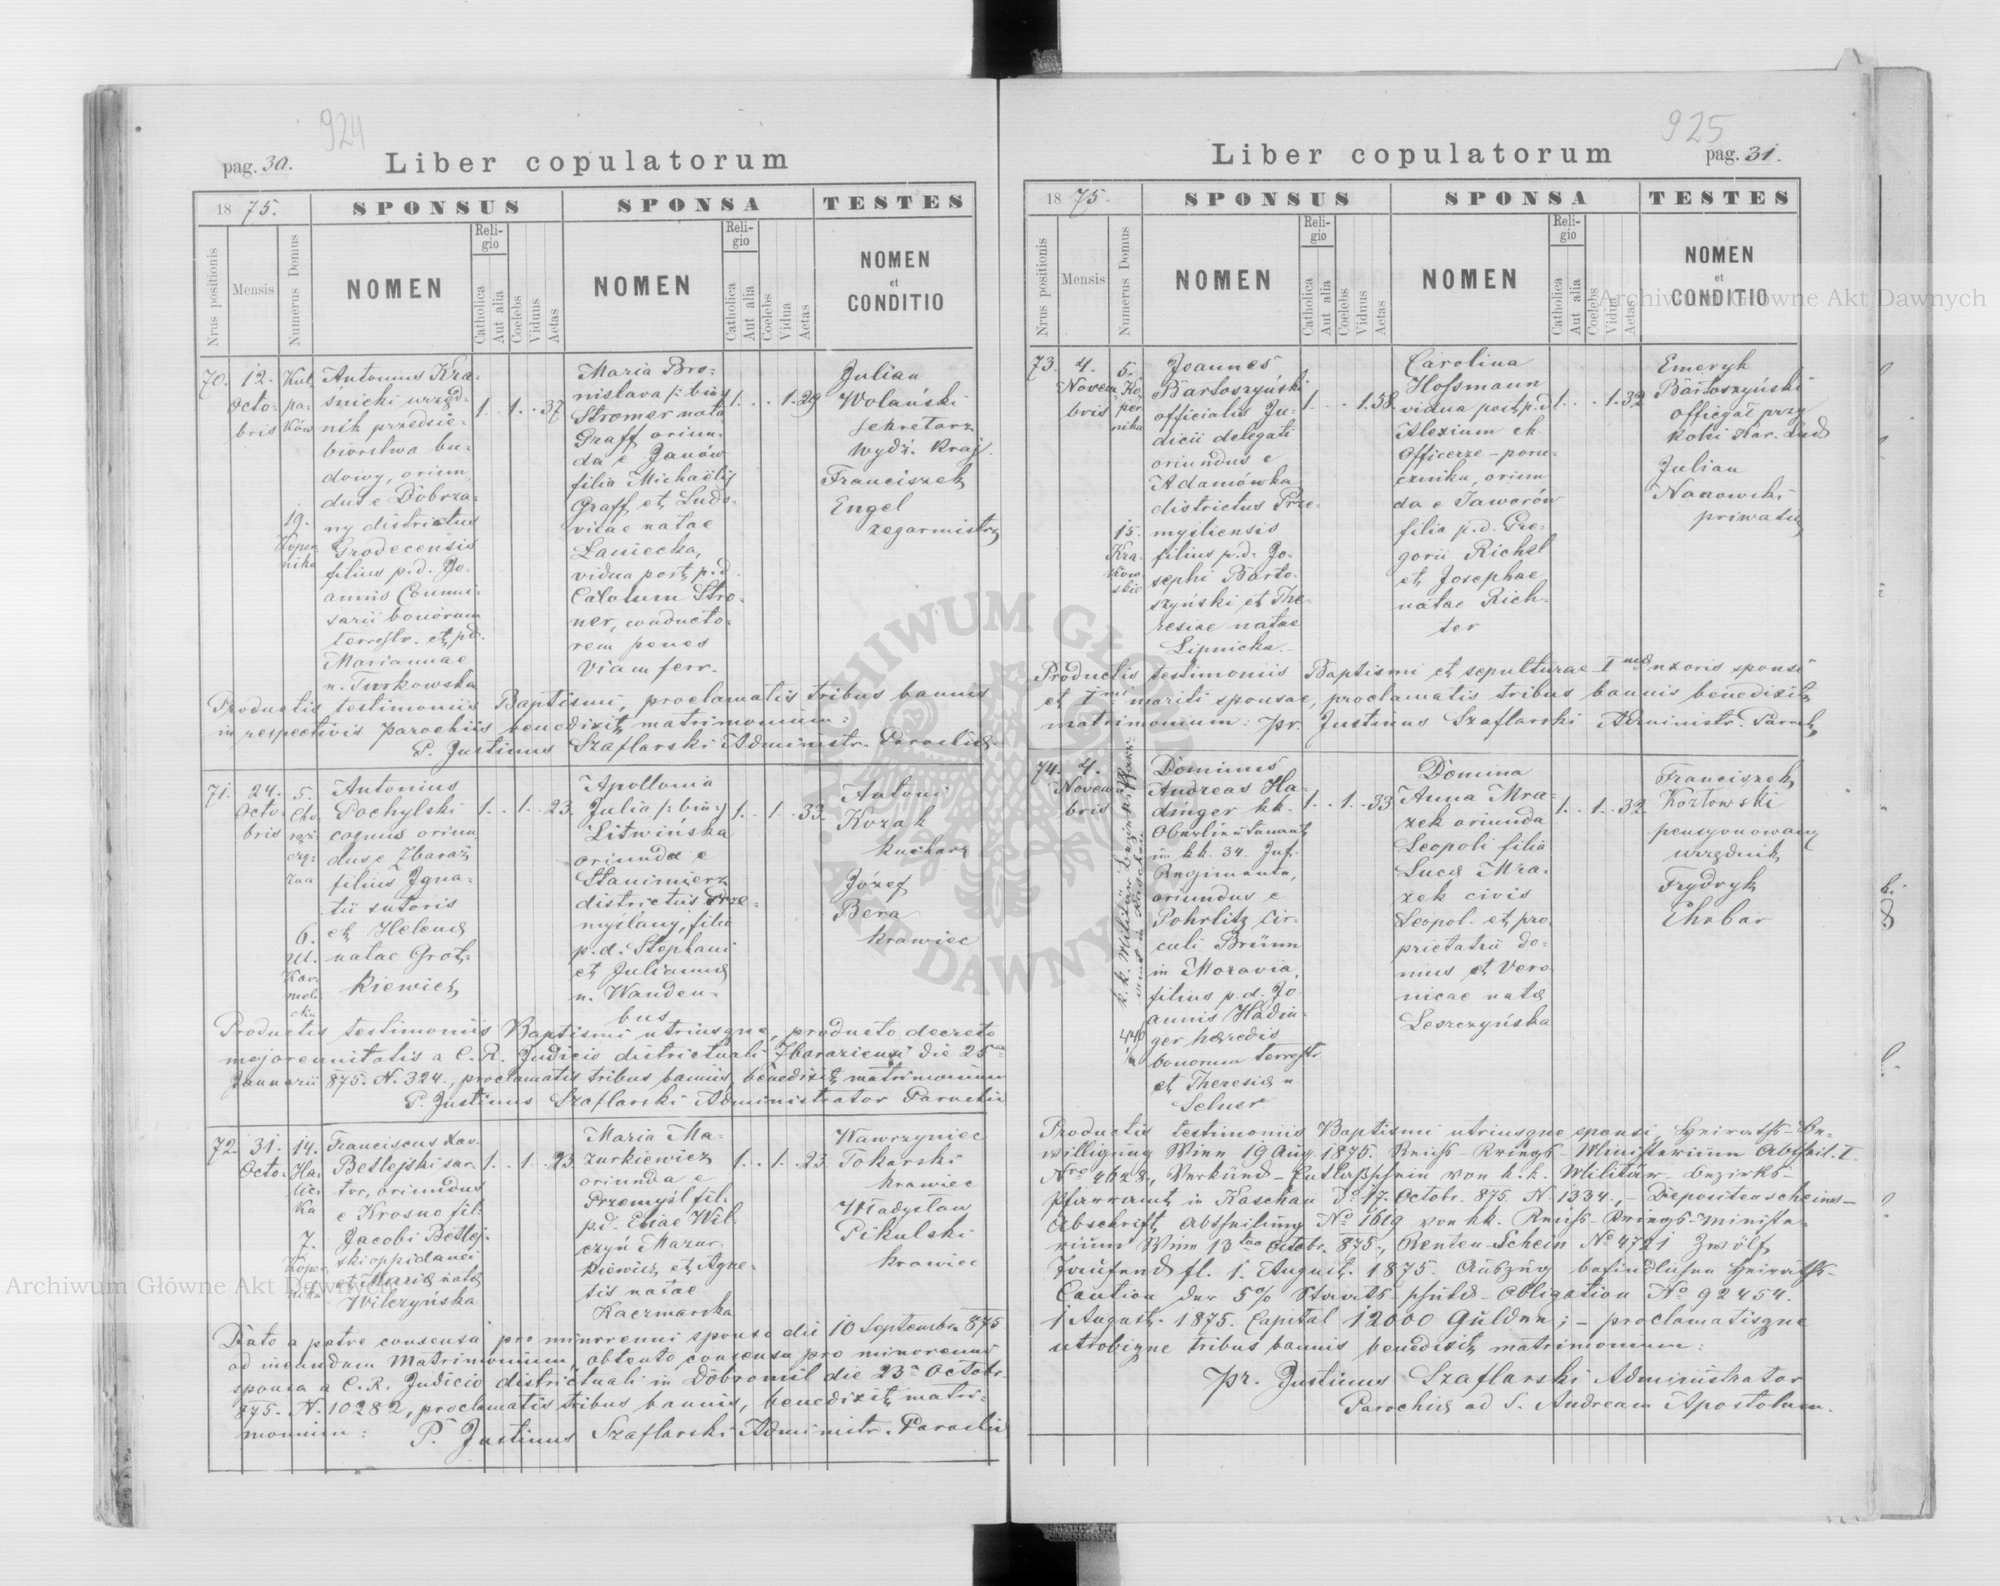 924
pag. 30.
Liber copulatorum
18 75.
SPONSUS
SPONSA
TESTES
Nrus positionis
Mensis
Numerus Domus
NOMEN
Religio
Catholica
Aut alia
Coelebs
Viduus
Aetas
NOMEN
Religio
Catholica
Aut alia
Coelebs
Vidua
Aetas
NOMEN
et
CONDITIO
70.
12.
Octo-
bris
Kul-
pa-
ków
19.
Koper-
nika
Antonius Kra-
śnicki urzęd-
nik przedsie-
biorstwa bu-
dowy, oriun-
dus e Dobrza-
ny districtus
Grodecensis
filius p.d. Jo-
annis Commi-
sarii bonorum
terrestr. et p.d.
Mariannae
n. Turkowska
1. . 1. . 37
Maria Bro-
nislava /: bin:/
Stromer nata
Graff oriun-
da e Janów
filia Michaëlis
Graff et Ludo-
vicae natae
Laniecka,
vidua post p.d.
Carolum Stro-
mer, conducto-
rem penes
Viam ferr.
1. . . 1. 29
Julian
Wolański
sekretarz
wydz. kraj.
Franciszek
Engel
zegarmistrz
Productis testimoniis Baptismi, proclamatis tribus bannis
in respectivis parochiis benedixit matrimonium:
P. Justinus Szaflarski Administr. Parochiae
71.
24.
Octo-
bris
5.
Cho-
rąż-
czy-
zna
6.
ul.
Kar-
meli-
cka
Antonius
Pochylski
coquus oriun-
dus e Zbaraż
filius Igna-
tii sutoris
et Helenae
natae Grot-
kiewicz
1. . 1. . 23.
Apollonia
Julia /: bin:/
Litwińska
oriunda e
Stanimierz
districtus Prze-
myślany, filia
p.d. Stephani
et Juliannae
n. Wanden-
bus
1. . 1. . 33.
Antoni
Kozak
kucharz
Józef
Bera
krawiec
Productis testimoniis Baptismi utriusque, producto decreto
majorennitatis a C.R. Judicio districtuali Zbaraziensi die 25
Januarii 875. N. 324., proclamatis tribus bannis, benedixit matrimonium
P. Justinus Szaflarski Administrator Parochiae
72.
31.
Octo-
14.
Ha-
lic-
ka
7.
Koper-
nika
Franciscus Xav.
Betlejski sar-
tor, oriundus
e Krosno fil.
Jacobi Betlej-
ski oppidanei
et Mariae natae
Wilczyńska
1. . 1. . 23
Maria Ma-
zurkiewicz
oriunda e
Przemyśl fil.
p.d. Eliae Wil-
czyń Mazur-
kiewicz et Agne-
tis natae
Kaczmarska
1. . 1. . 23.
Wawrzyniec
Tokarski
krawiec
Władysław
Pikulski
krawiec
Dato a patre consensu pro minorenni sponso die 10 Septembr. 875
ad ineundum Matrimonium, obtento consensu pro minorenni
sponsa a C.R. Judicio districtuali in Dobromil die 23a Octobr.
875. N. 10282, proclamatis tribus bannis, benedixit matri-
monium: P. Justinus Szaflarski Administr. Parochiae
925
Liber copulatorum
pag. 31.
18 75.
SPONSUS
SPONSA
TESTES
Nrus positionis
Mensis
Numerus Domus
NOMEN
Religio
Catholica
Aut alia
Coelebs
Viduus
Aetas
NOMEN
Religio
Catholica
Aut alia
Coelebs
Vidua
Aetas
NOMEN
et
CONDITIO
73.
4.
Novem-
bris
5.
Ko-
per-
nika
15.
Kra-
kow-
skie
Joannes
Bartoszyński
officialis Ju-
dicii delegati
oriundus e
Adamówka
districtus Prze-
mysliensis
filius p.d. Jo-
sephi Barto-
szyński et The-
resiae natae
Lipnicka.
1. . . 1. 58
Carolina
Hoffmann
vidua post p.d.
Alexium ck.
Officerze - poru-
czniku, oriun-
da e Jaworów
filia p.d. Gre-
gorii Richel
et Josephae
natae Rich-
ter
1. . . 1. 32
Emeryk
Bartoszyński
officyał przy
kolei Kar. Lud
Julian
Nanowski
prywatny
Productis testimoniis Baptismi et sepulturae Imae uxoris sponsi
et Imi mariti sponsae, proclamatis tribus bannis benedixit
matrimonium: pr. Justinus Szaflarski Administr. Paroch.
74.
4.
Novem-
bris
k.k. Militär Bezirks Pfarr-
amt in Kaschau
Dominus
Andreas Ha-
dinger kk.
Oberlieutenant
im kk. 34. Inf.
Regimente,
oriundus e
Pohrlitz Cir-
culi Brünn
in Moravia,
filius p.d. Jo-
annis Hadin-
ger haeredis
bonorum terrestr.
et Theresiae n.
Selner
1. . 1. . 33
Domina
Anna Mra-
zek oriunda
Leopoli filia
Lucae Mra-
zek civis
Leopol. et pro-
prietarii do-
mus et Vero-
nicae natae
Leszczyńska
1. . 1. . 32.
Franciszek
Kozłowski
pensyonowany
urzędnik
Frydryk
Ehrbar
Productis testimoniis Baptismi utriusque sponsi, Heiraths-Be-
willigung Wien 19 Aug 1875. Reichs-Kriegs-Ministerium Abtheil. I.
Nro 4628, Verkünd-Entlaßschein von k.k. Militär-Bezirks-
Pfarramt in Kaschau do 17. Octobr. 875. N. 1334., - Depositenscheins-
Abschrift Abtheilung No 1619 von kk. Reichs-Kriegs-Ministe-
rium Wien 13ten Octobr. 875., Renten-Schein No 4721 Zwölf
Tausend fl. 1. August. 1875. Auszug befindlichen Heiraths-
Caution der 5% Staats-schuld-Obligation No 92454.
1 August. 1875. Capital 12000 Gulden; - proclamatisque
utrobique tribus bannis benedixit matrimonium:
pr. Justinus Szaflarski Administrator
Parochiae ad S. Andream Apostolum.
Archiwum Główne Akt Dawnych
Archiwum Główne Akt Dawnych
ARCHIWUM GŁÓWNE AKT DAWNYCH